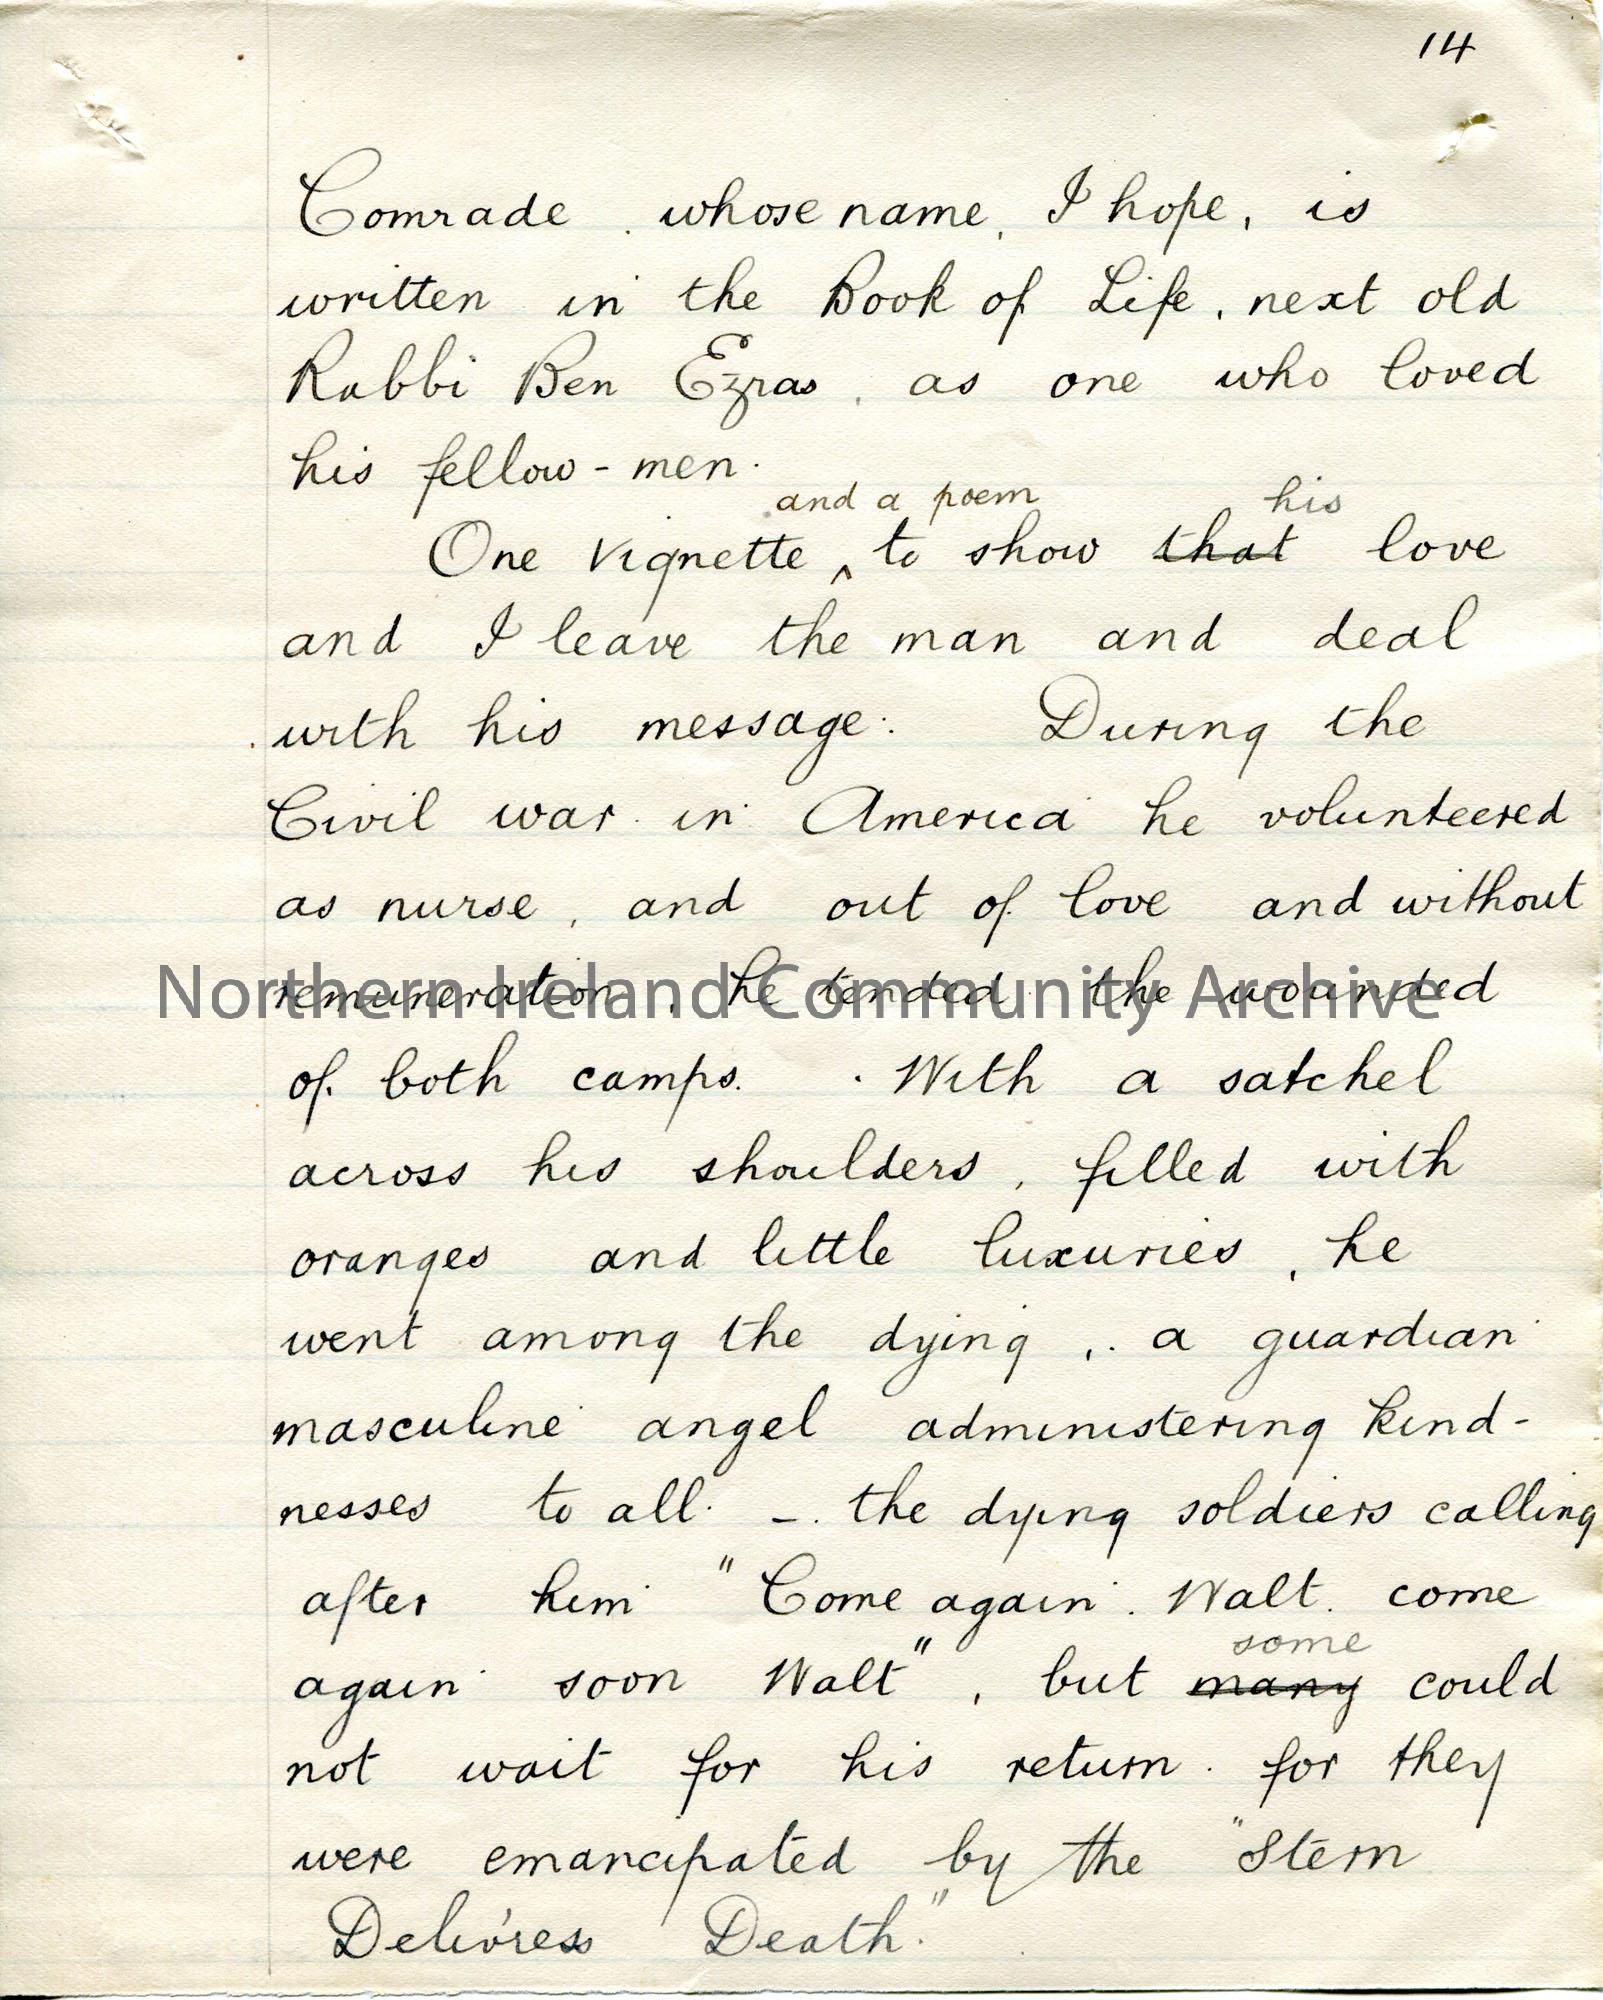 14
Comrade, whose name, I hope, is
written in the Book of Life, next old
Rabbi Ben Ezras, as one who loved
his fellow-men.
and a poem his
One vignette ^ to show that love
and I leave the man and deal
with his message. During the
Civil war in America he volunteered
as nurse, and out of love and without
remuneration, he tended the wounded
Northern Ireland Community Archive
of both camps. With a satchel
across his shoulders, filled with
oranges and little luxuries, he
went among the dying, a guardian
masculine angel administering kind-
nesses to all - the dying soldiers calling
after him "Come again. Walt. come
some
again soon Walt", but many could
not wait for his return. for they
were emancipated by the "Stern
Deliv'ress Death."